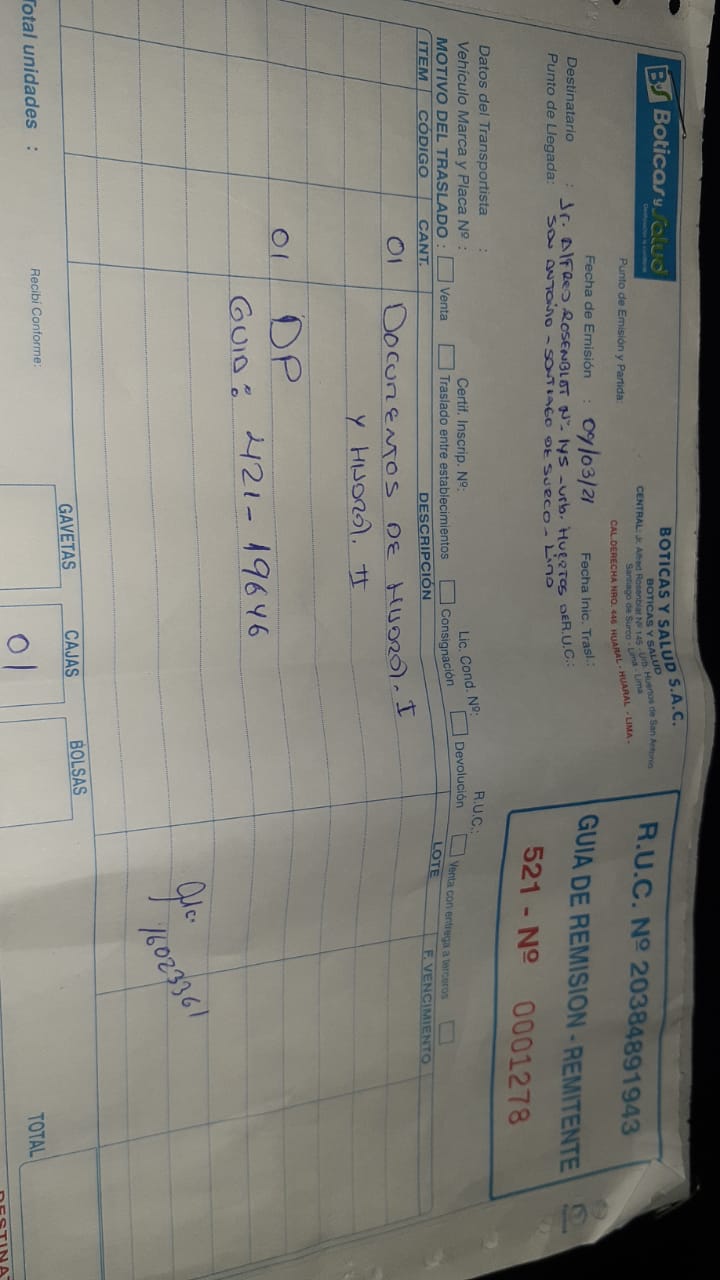 Boticas y Salud
BOTICAS Y SALUD S.A.C.
BOTICAS Y SALUD
CENTRAL: Jr. Alfred Rosenblat Nº 145 - Urb. Huertos de San Antonio
Santiago de Surco - Lima - Lima
CAL. DERECHA NRO. 446 HUARAL - HUARAL - LIMA -
Punto de Emisión y Partida:
R.U.C. Nº 20384891943
GUIA DE REMISION - REMITENTE
521 - Nº 0001278
Fecha de Emisión : 09/03/21 Fecha Inic. Trasl.:
Destinatario : R.U.C.:
Punto de Llegada: Jr. Alfred Rosenblat Nº 145 - Urb. Huertos de
San Antonio - Santiago de Surco - Lima
Datos del Transportista : R.U.C.:
Vehículo Marca y Placa Nº : Certif. Inscrip. Nº: Lic. Cond. Nº:
MOTIVO DEL TRASLADO : Venta Traslado entre establecimientos Consignación Devolución Venta con entrega a terceros
ITEM CÓDIGO CANT. DESCRIPCIÓN LOTE F. VENCIMIENTO
01 Documentos de Huaral. I
y Huaral. II
01 DP
Guia: 421-19646
16023361
GAVETAS CAJAS BOLSAS TOTAL
Total unidades : Recibí Conforme: 01
DESTINA